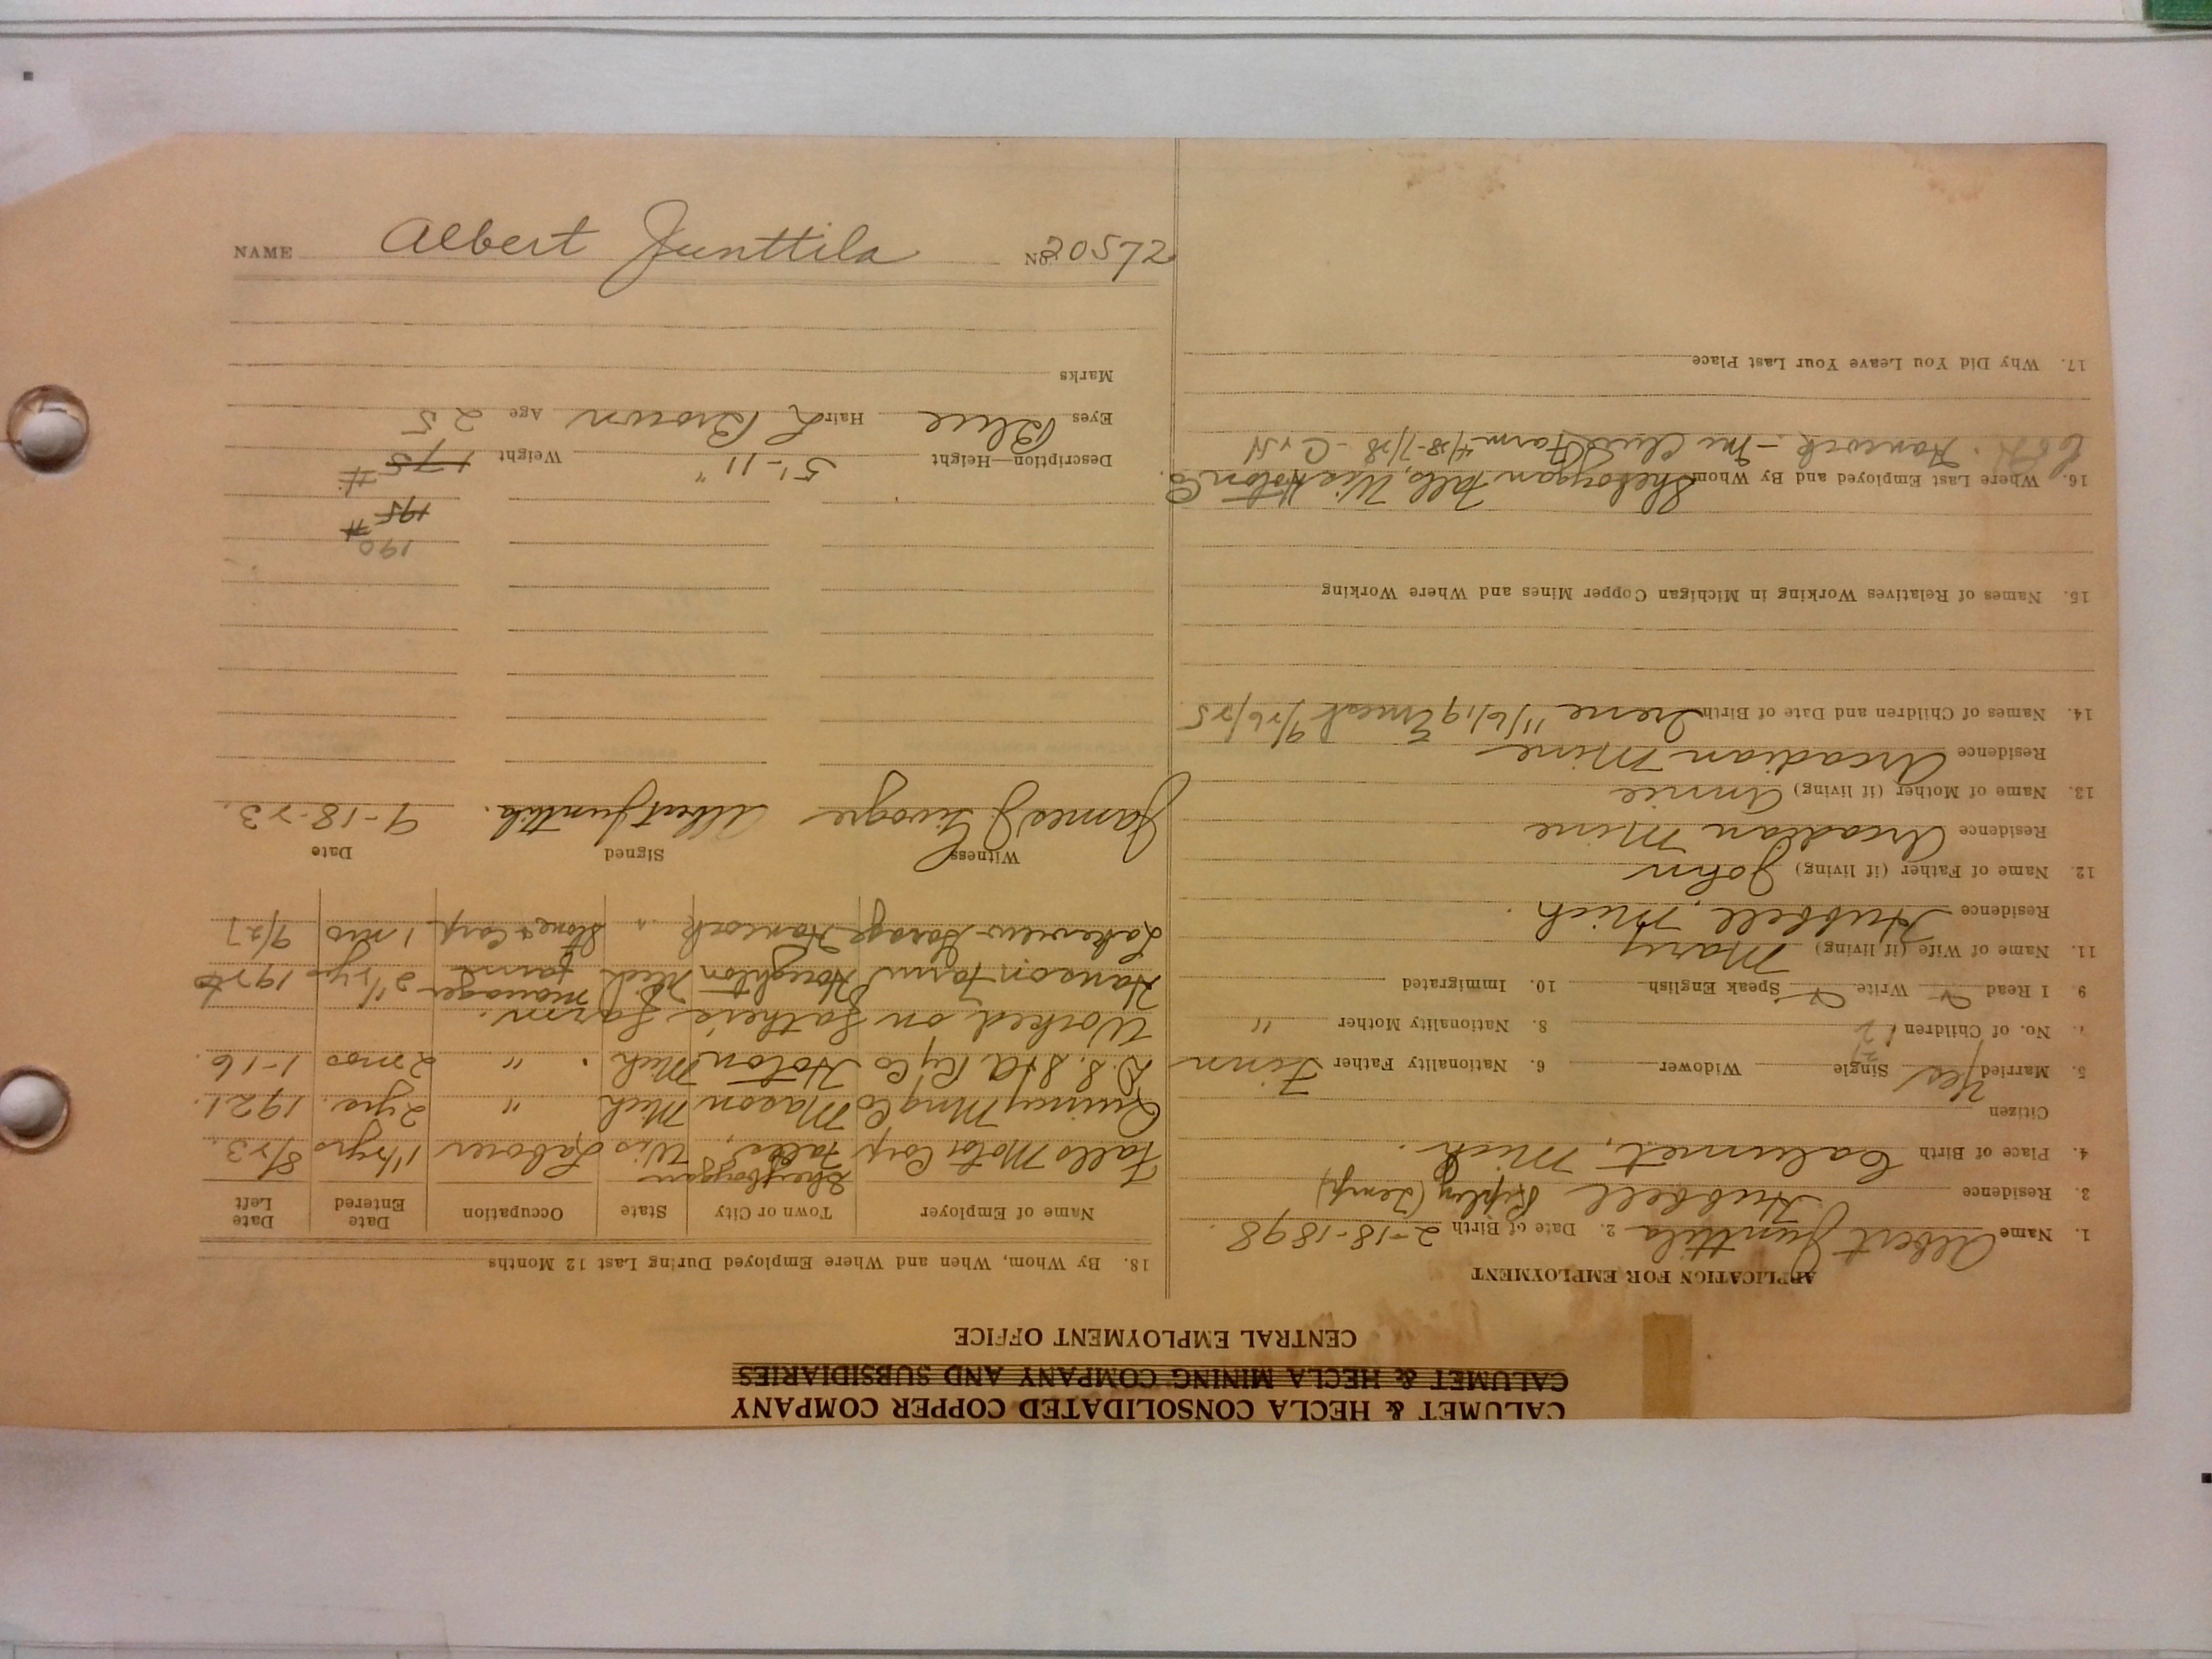 NAME Albert Junttila No. 20572
CALUMET & HECLA CONSOLIDATED COPPER COMPANY
CALUMET & HECLA MINING COMPANY AND SUBSIDIARIES
CENTRAL EMPLOYMENT OFFICE
APPLICATION FOR EMPLOYMENT
1. Name Albert Junttila 2. Date of Birth 2-18-1898.
3. Residence Hubbell Ripley (Temp)
4. Place of Birth Calumet, Mich.
Citizen
5. Married Yes Single Widower 6. Nationality Father Finn
7. No. of Children 2 8. Nationality Mother "
9. I Read Write Speak English 10. Immigrated
11. Name of Wife (if living) Mary
Residence Hubbell, Mich.
12. Name of Father (if living) John
Residence Arcadian Mine
13. Name of Mother (if living) Annie
Residence Arcadian Mine
14. Names of Children and Date of Birth Irene 11/6/19 Ernest 9/26/25
15. Names of Relatives Working in Michigan Copper Mines and Where Working
16. Where Last Employed and By Whom Sheboygan Falls, Wis Hoton Co.
Hancock - Farm 4/28-7/28 - C & H
17. Why Did You Leave Your Last Place
18. By Whom, When and Where Employed During Last 12 Months
Name of Employer Town or City State Occupation Date Entered Date Left
Falls Motor Corp Sheyboygan Falls, Wis Laborer 1 1/2 yrs 8/23.
Quincy Mng Co Mason Mich " 2 yrs. 1921.
D. S. S & A Ry Co Hoton Mich " 2 mos 1-16.
Worked on father's farm.
Hanson Farm Houghton Mich manager farm 2 1/2 yrs 1926
Lakeview Garage Hancock " 1 mo 9/27
Witness Signed Date
James J. Albert Junttila. 9-18-23.
190
195 #
Description—Height 5'-11" Weight 175 #
Eyes Blue Hair L Brown Age 25
Marks